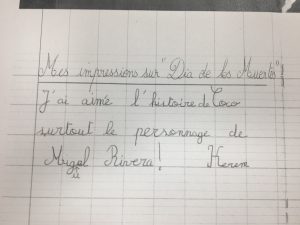 Mes impressions sur "Dia de los Muertos"
J'ai aimé l'histoire de Coco
surtout le personnage de
Miguel Rivera! Kerem